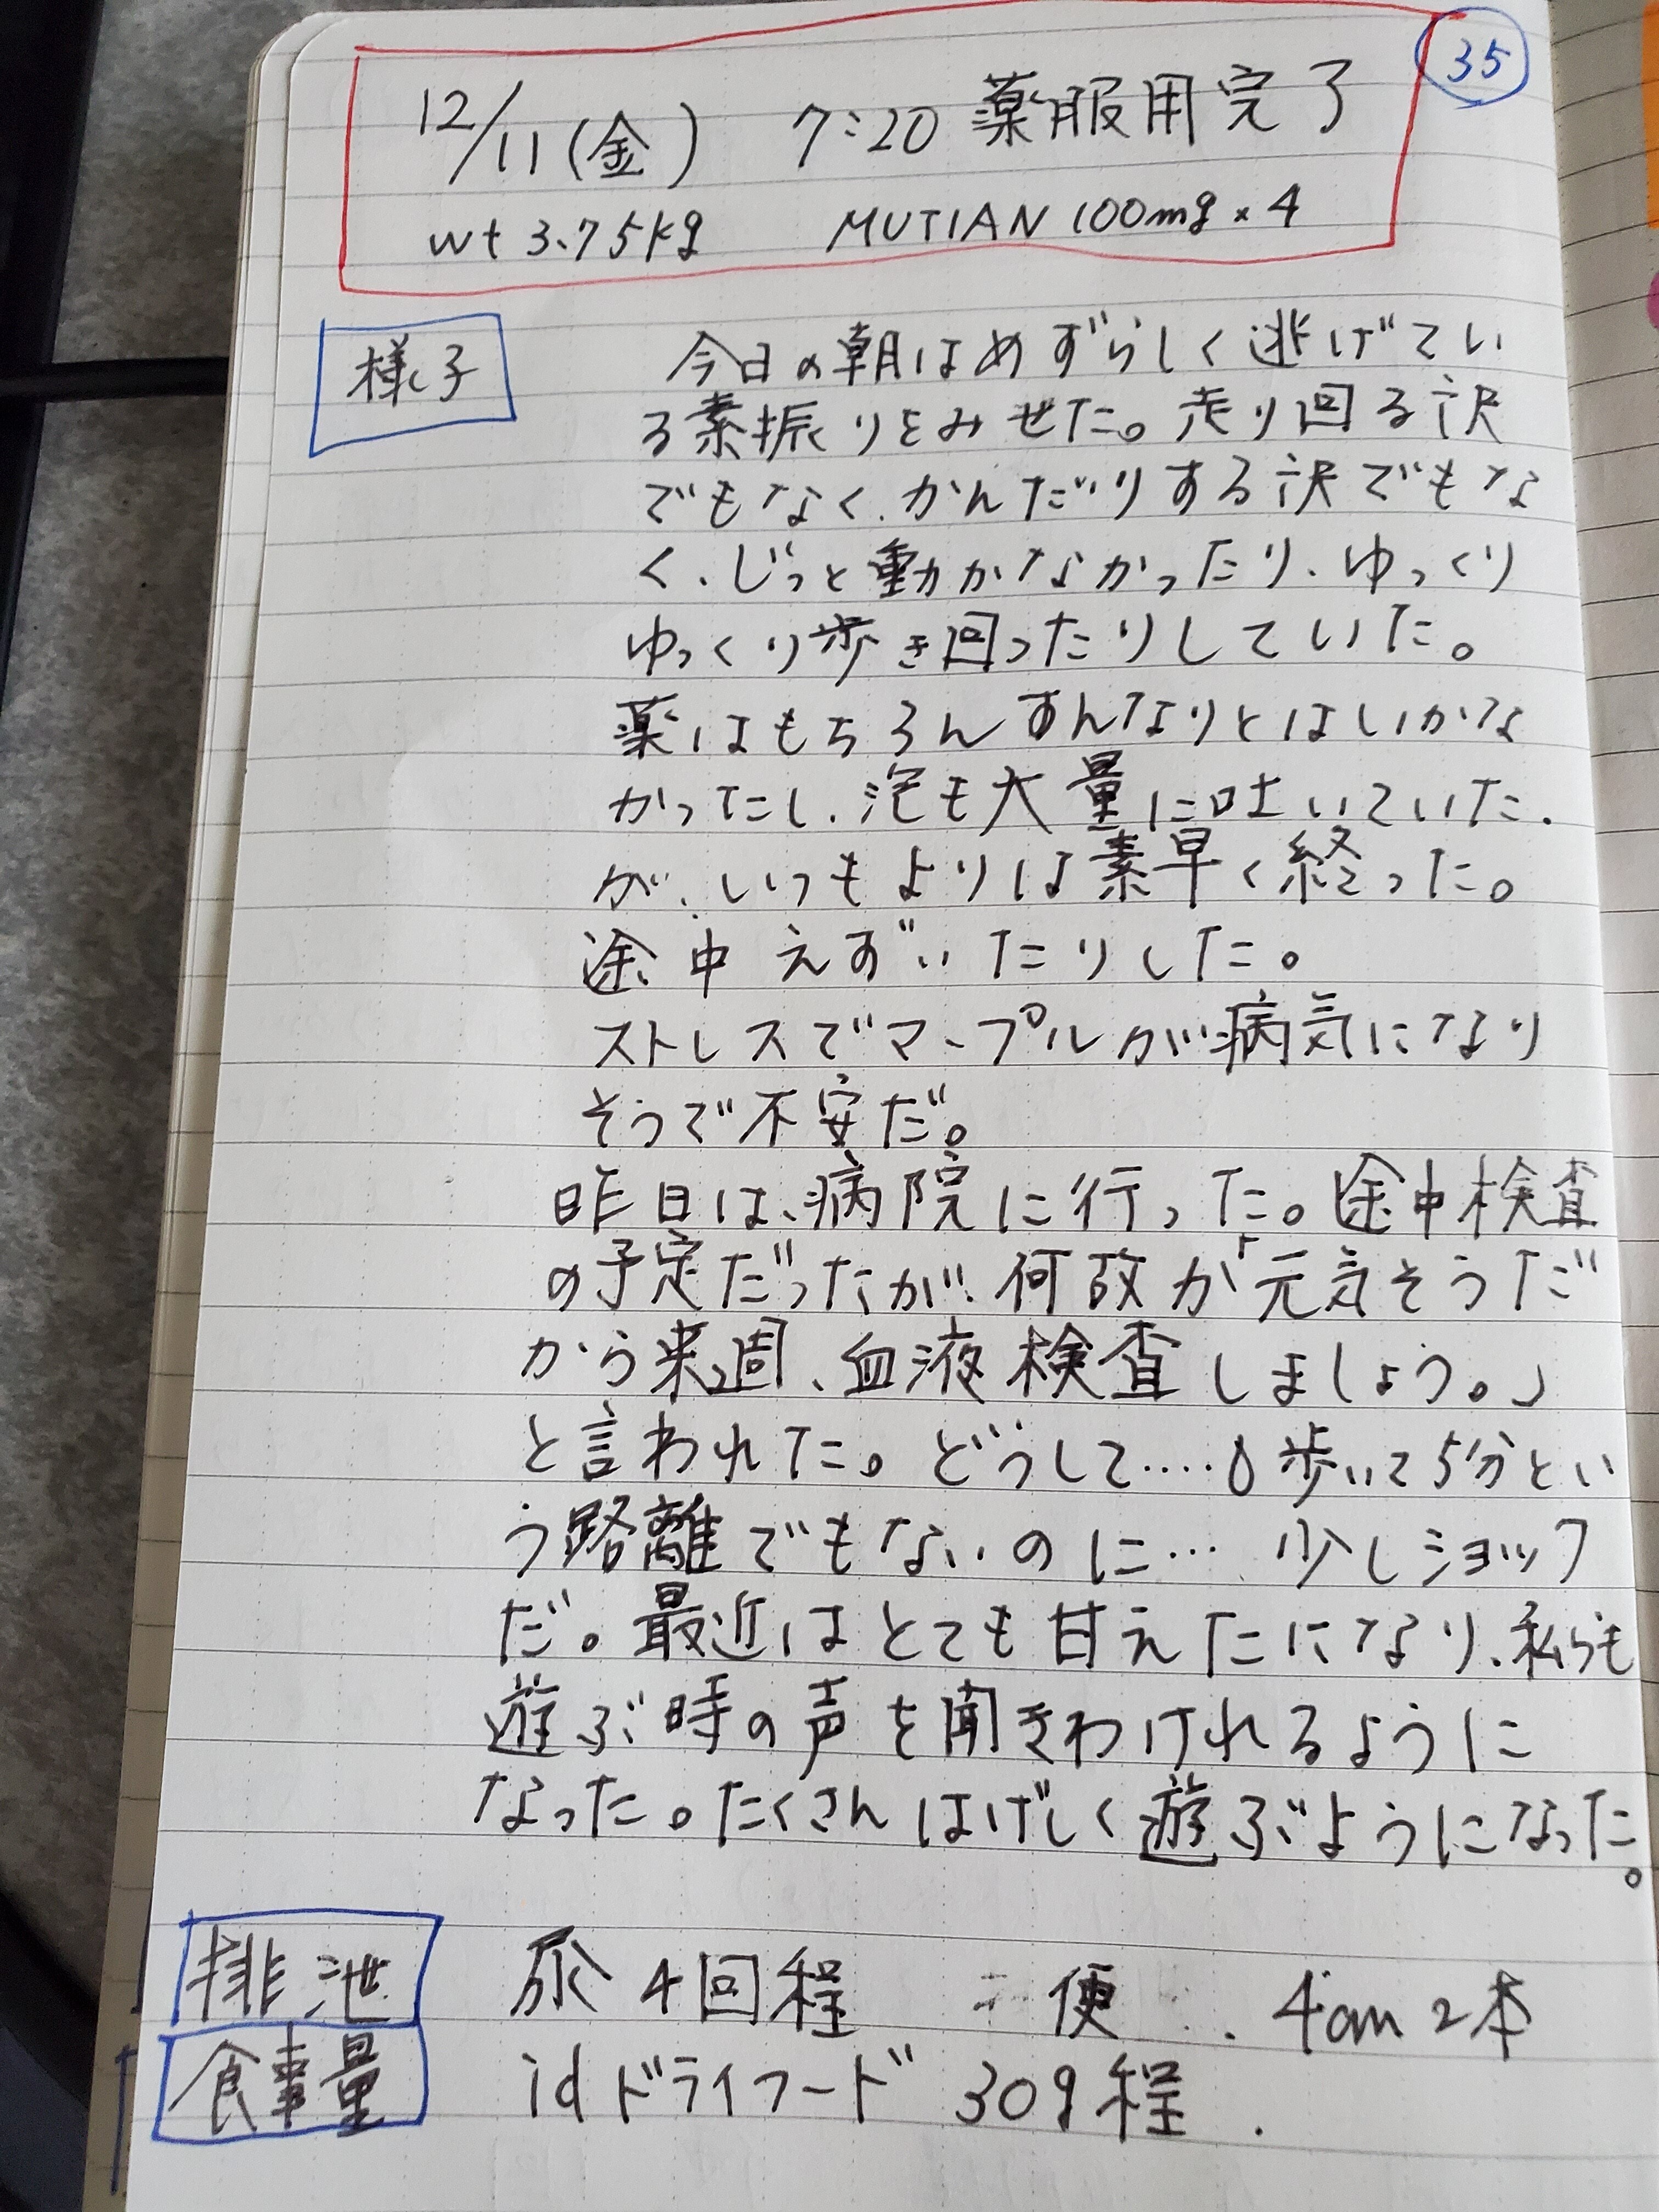 35
12/11(金) 7:20 薬服用完了
wt 3.75kg MUTIAN 100mg×4
様子
今日の朝はめずらしく逃げてい
る素振りをみせた。走り回る訳
でもなく、かんだりする訳でもな
く、じっと動かなかったり、ゆっくり
ゆっくり歩き回ったりしていた。
薬はもちろんすんなりとはいかな
かったし、泡も大量に吐いていた
が、いつもよりは素早く終った。
途中えずいたりした。
ストレスでマープルが病気になり
そうで不安だ。
昨日は、病院に行った。途中検査
の予定だったが、何故か「元気そうだ
から来週、血液検査しましょう。」
と言われた。どうして....。歩いて5分とい
う路離でもないのに... 少しショック
だ。最近はとても甘えたになり、私らも
遊ぶ時の声を聞きわけれるように
なった。たくさんはげしく遊ぶようになった。
排泄 尿4回程 便 4cm 2本
食事量 idドライフード 30g程.